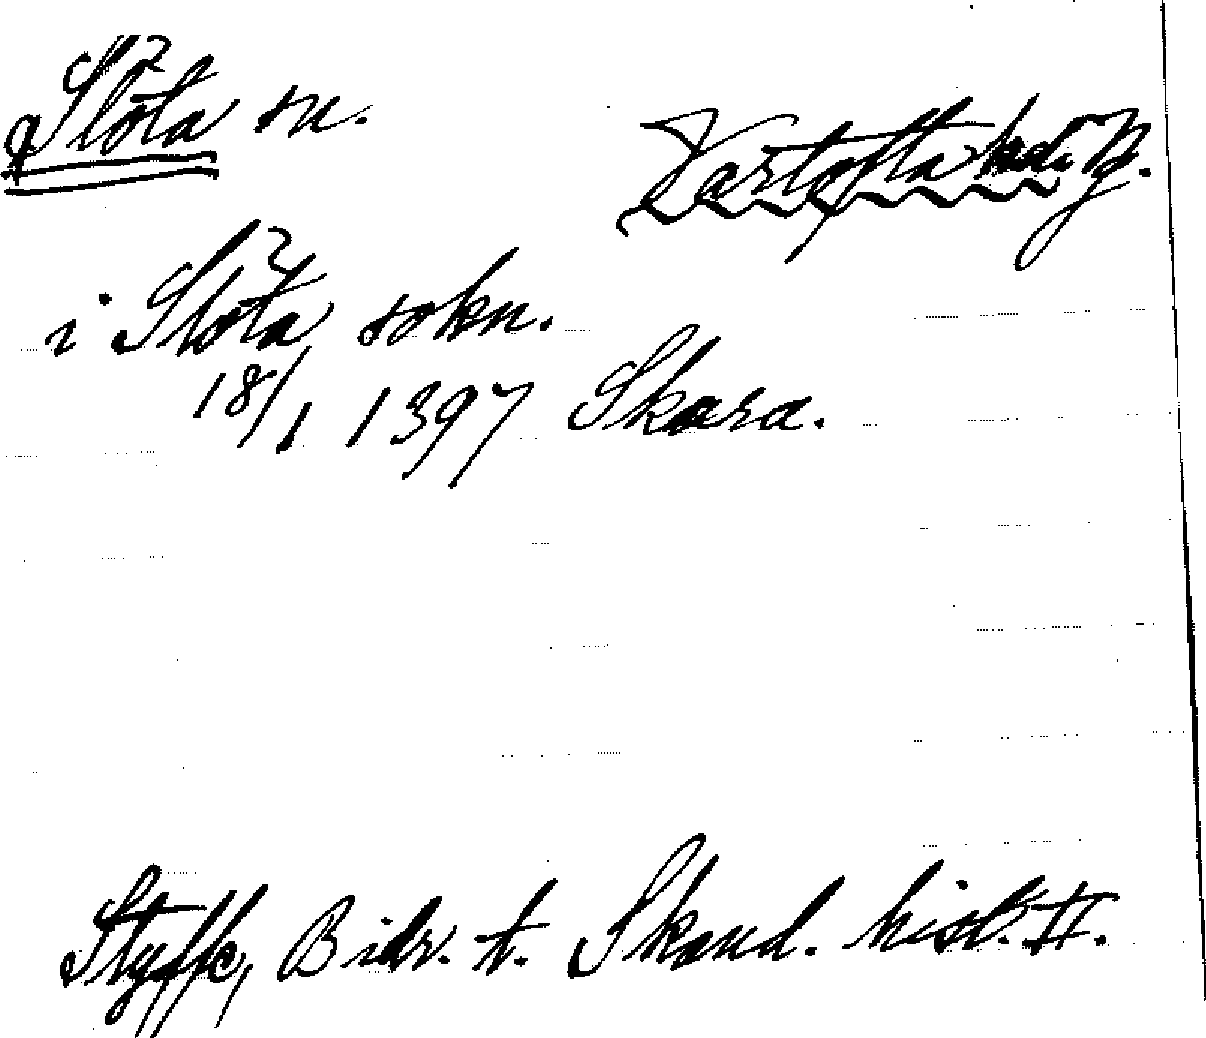 Slöta sn.
Vartofta hd. Vg.
i Slöta sokn.
18/1 1397 Skara.
Styffe, Bidr. t. Skand. hist. II.